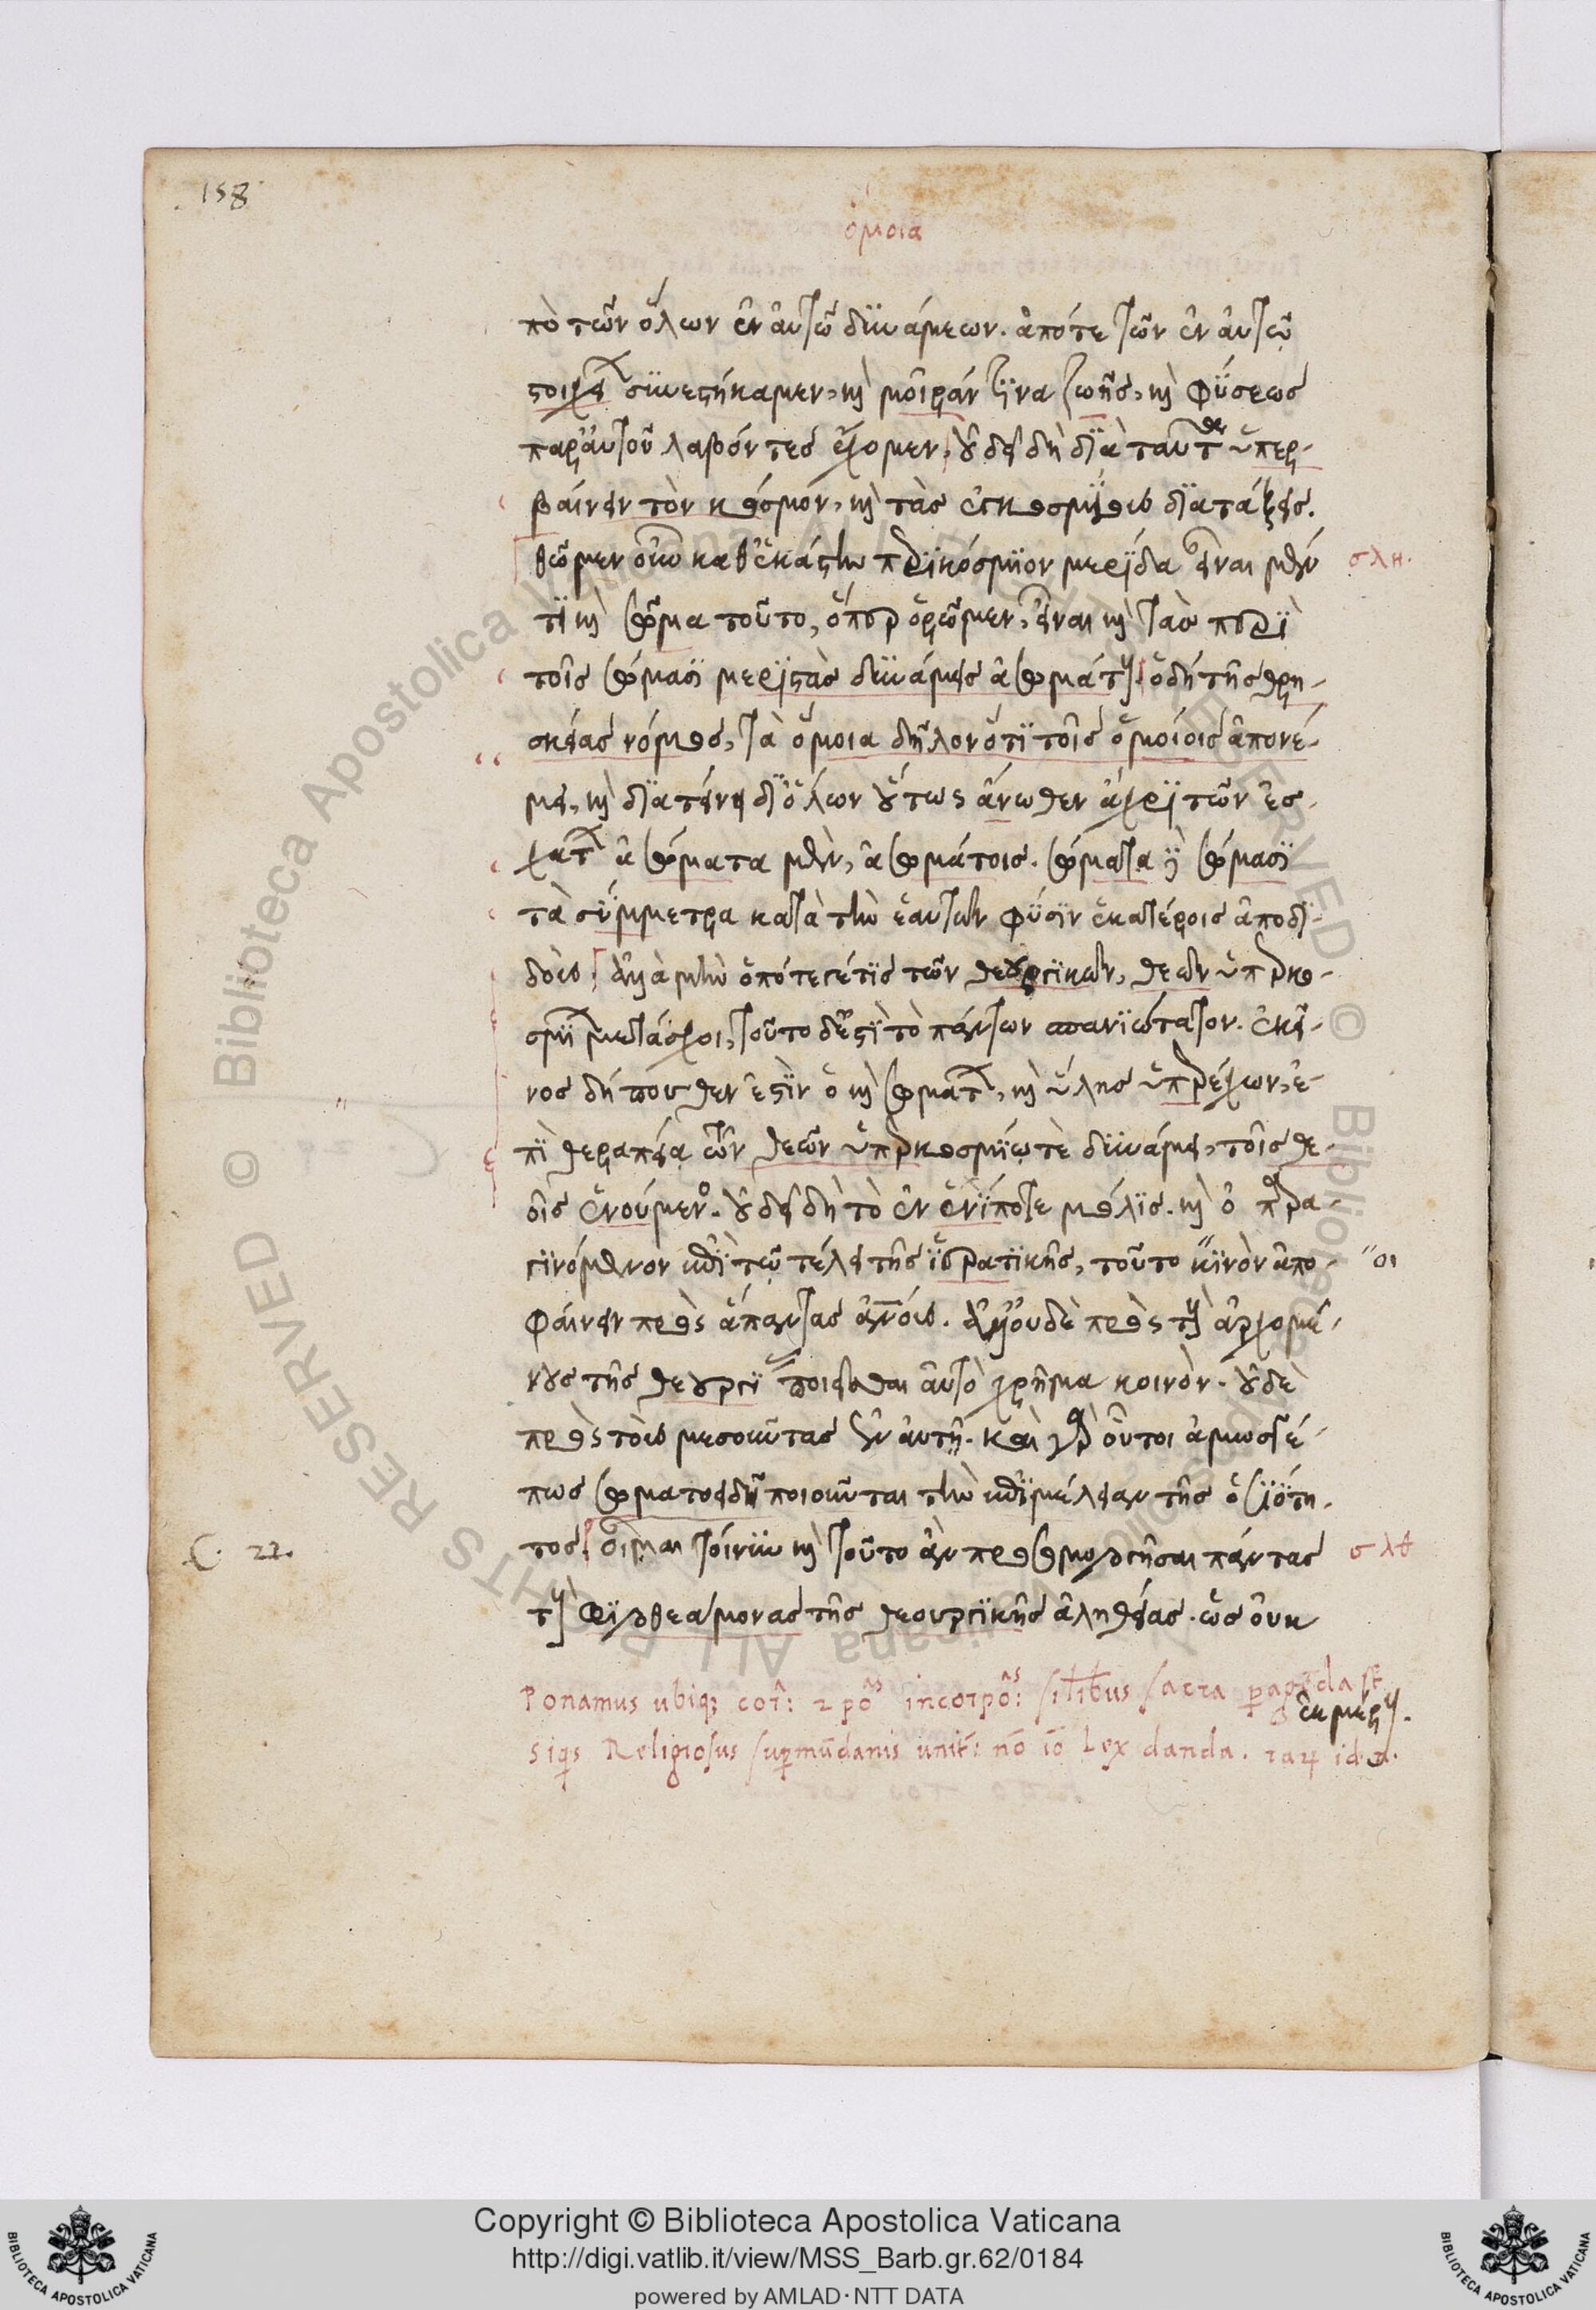 158
ὅμοια
πὸ τῶν ὅλων ἐν αὐτῷ δυνάμεων. ἀπό τε τῶν ἐν αὐτῷ
στοιχείων συνεστήκαμεν, καὶ μοῖράν τινα ζωῆς, καὶ φύσεως
παρ' αὐτοῦ λαβόντες ἔχομεν, οὐ δεῖ δὴ διὰ ταῦτα ὑπερ-
βαίνειν τὸν κόσμον, καὶ τὰς ἐγκοσμίους διατάξεις.
θῶμεν οὖν καθ' ἑκάστην περικόσμιον μερίδα εἶναι μέν
τι καὶ σῶμα τοῦτο, ὅπερ ὁρῶμεν, εἶναι καὶ τὰς περὶ
τοῖς σώμασι μεριστὰς δυνάμεις ἀσωμάτους. ὁ δὴ τῆς θρη-
σκείας νόμος, τὰ ὅμοια δηλονότι τοῖς ὁμοίοις ἀπονέ-
μει, καὶ διατείνει δι' ὅλων οὕτως ἄνωθεν ἄχρι τῶν ἐσ-
χάτων ἀσώματα μὲν, ἀσωμάτοις. σώματα δὲ σώμασι
τὰ σύμμετρα κατὰ τὴν ἑαυτῶν φύσιν ἑκατέροις ἀποδι-
δούς. ἀλλὰ μὴν ὁπότε γέ τις τῶν θεουργικῶν, θεῶν ὑπερκο-
σμίων μετάσχοι, τοῦτο δέ ἐστι τὸ πάντων σπανιώτατον. ἐκεῖ-
νος δήπουθέν ἐστιν ὁ καὶ σωμάτων, καὶ ὕλης ὑπερέχων, ἐ-
πὶ θεραπείᾳ τῶν θεῶν ὑπερκοσμίῳ τὲ δυνάμει, τοῖς θε-
οῖς ἑνούμενος. οὐ δεῖ δὴ τὸ ἐν ἑνί ποτε μόλις. καὶ ὀψὲ παρα-
γινόμενον ἐπὶ τῷ τέλει τῆς ἱερατικῆς, τοῦτο κινὸν ἀπο-
φαίνειν πρὸς ἅπαντας ἀνους. ἀλλ' οὐδὲ πρὸς τοὺς ἀρχομέ-
νους τῆς θεουργίας ποιεῖσθαι αὐτὸ χρῆμα κοινόν. οὐδὲ
πρὸς τοὺς μεσοῦντας ἐν αὐτῇ. καὶ γὰρ οὗτοι ἁμωσγέ-
πως σωματοειδῆ ποιοῦνται τὴν ἐπιμέλειαν τῆς ὁσιότη-
τος. οἶμαι τοίνυν καὶ τοῦτο ἂν προσομολογῆσαι πάντας
τοὺς φιλοθεάμονας τῆς θεουργικῆς ἀληθείας. ὡς οὐκ
ἐκ μέρους.
σλη.
οι
σλθ
C. 22.
Ponamus ubiq; cor: incorpo: silibus sacra peragēda
siqs Religiosus supmūdanis unit: nō iō Lex danda.
Copyright © Biblioteca Apostolica Vaticana
http://digi.vatlib.it/view/MSS_Barb.gr.62/0184
powered by AMLAD·NTT DATA
BIBLIOTECA APOSTOLICA VATICANA
BIBLIOTECA APOSTOLICA VATICANA